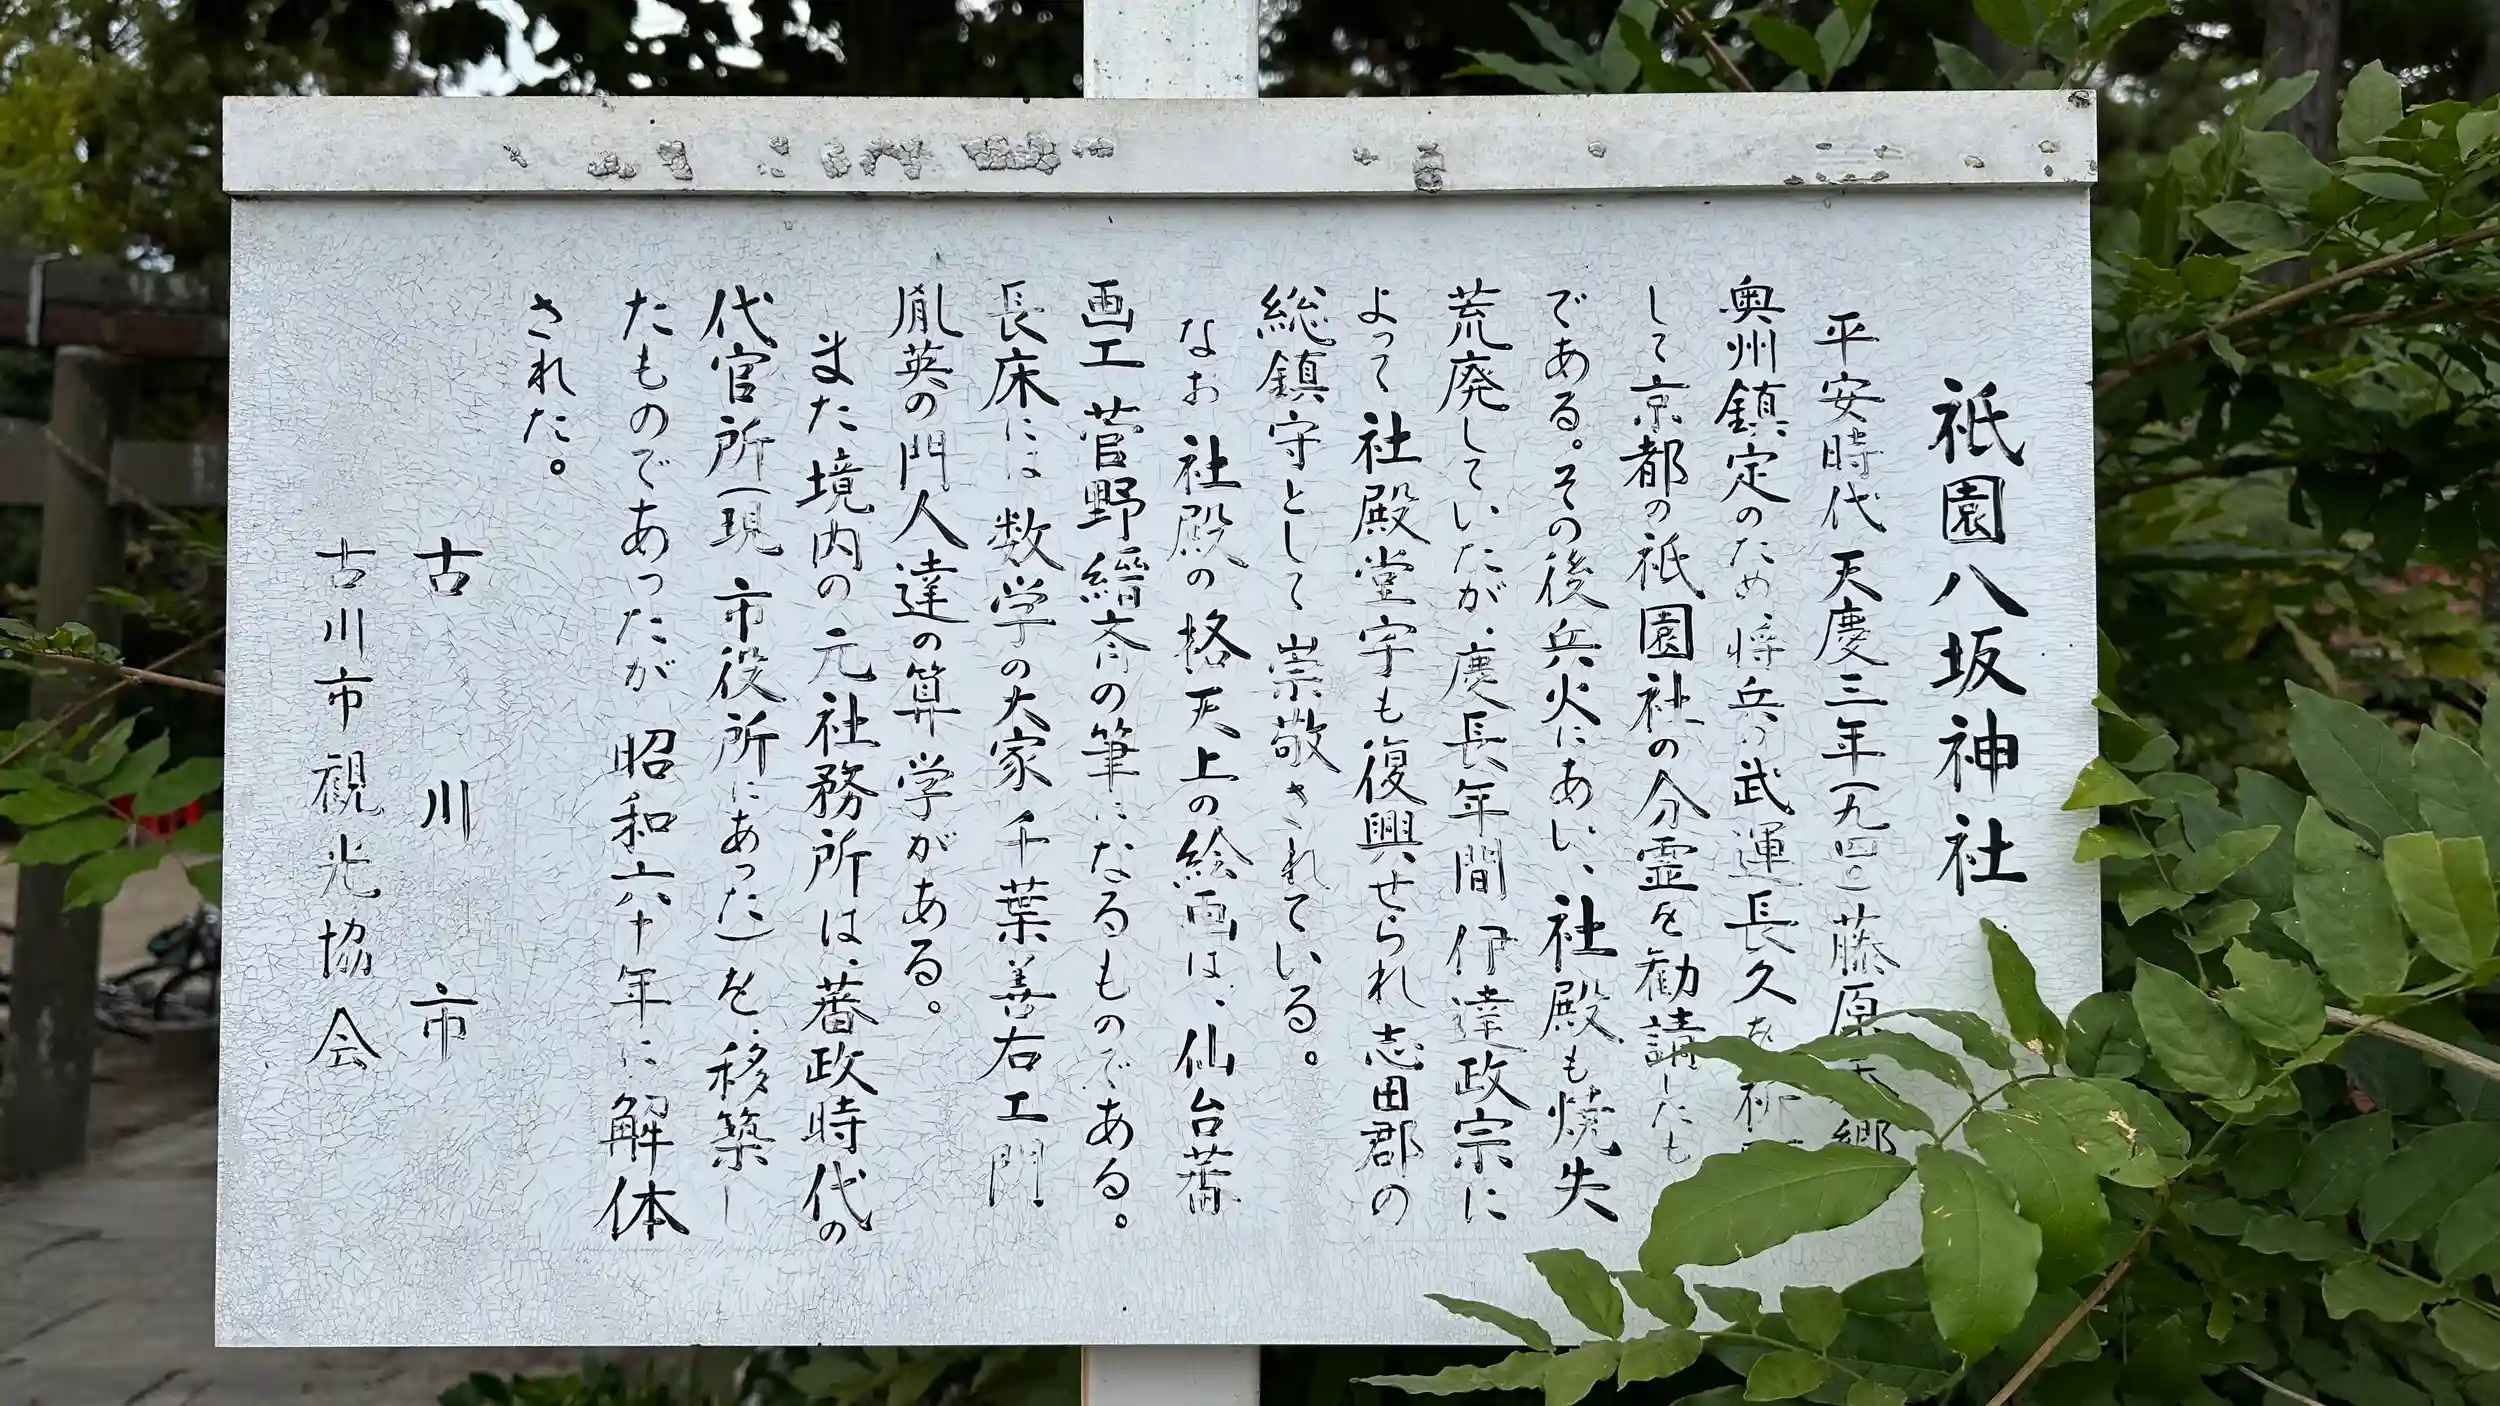 祇園八坂神社
平安時代天慶三年(九四〇)藤原 郷
奥州鎮定のため、将兵の武運長久を祈
して京都の祇園社の分霊を勧請したも
である。その後兵火にあい、社殿も焼失
荒廃していたが、慶長年間伊達政宗に
よって社殿堂宇も復興せられ志田郡の
総鎮守として崇敬されている。
なお社殿の格天上の絵画は、仙台藩
画工菅野縉斎の筆になるものである。
長床には数学の大家千葉善右エ門
胤英の門人達の算学がある。
また境内の元社務所は、蕃政時代の
代官所(現市役所にあった)を、移築し
たものであったが昭和六十年に解体
された。
古川市
古川市観光協会